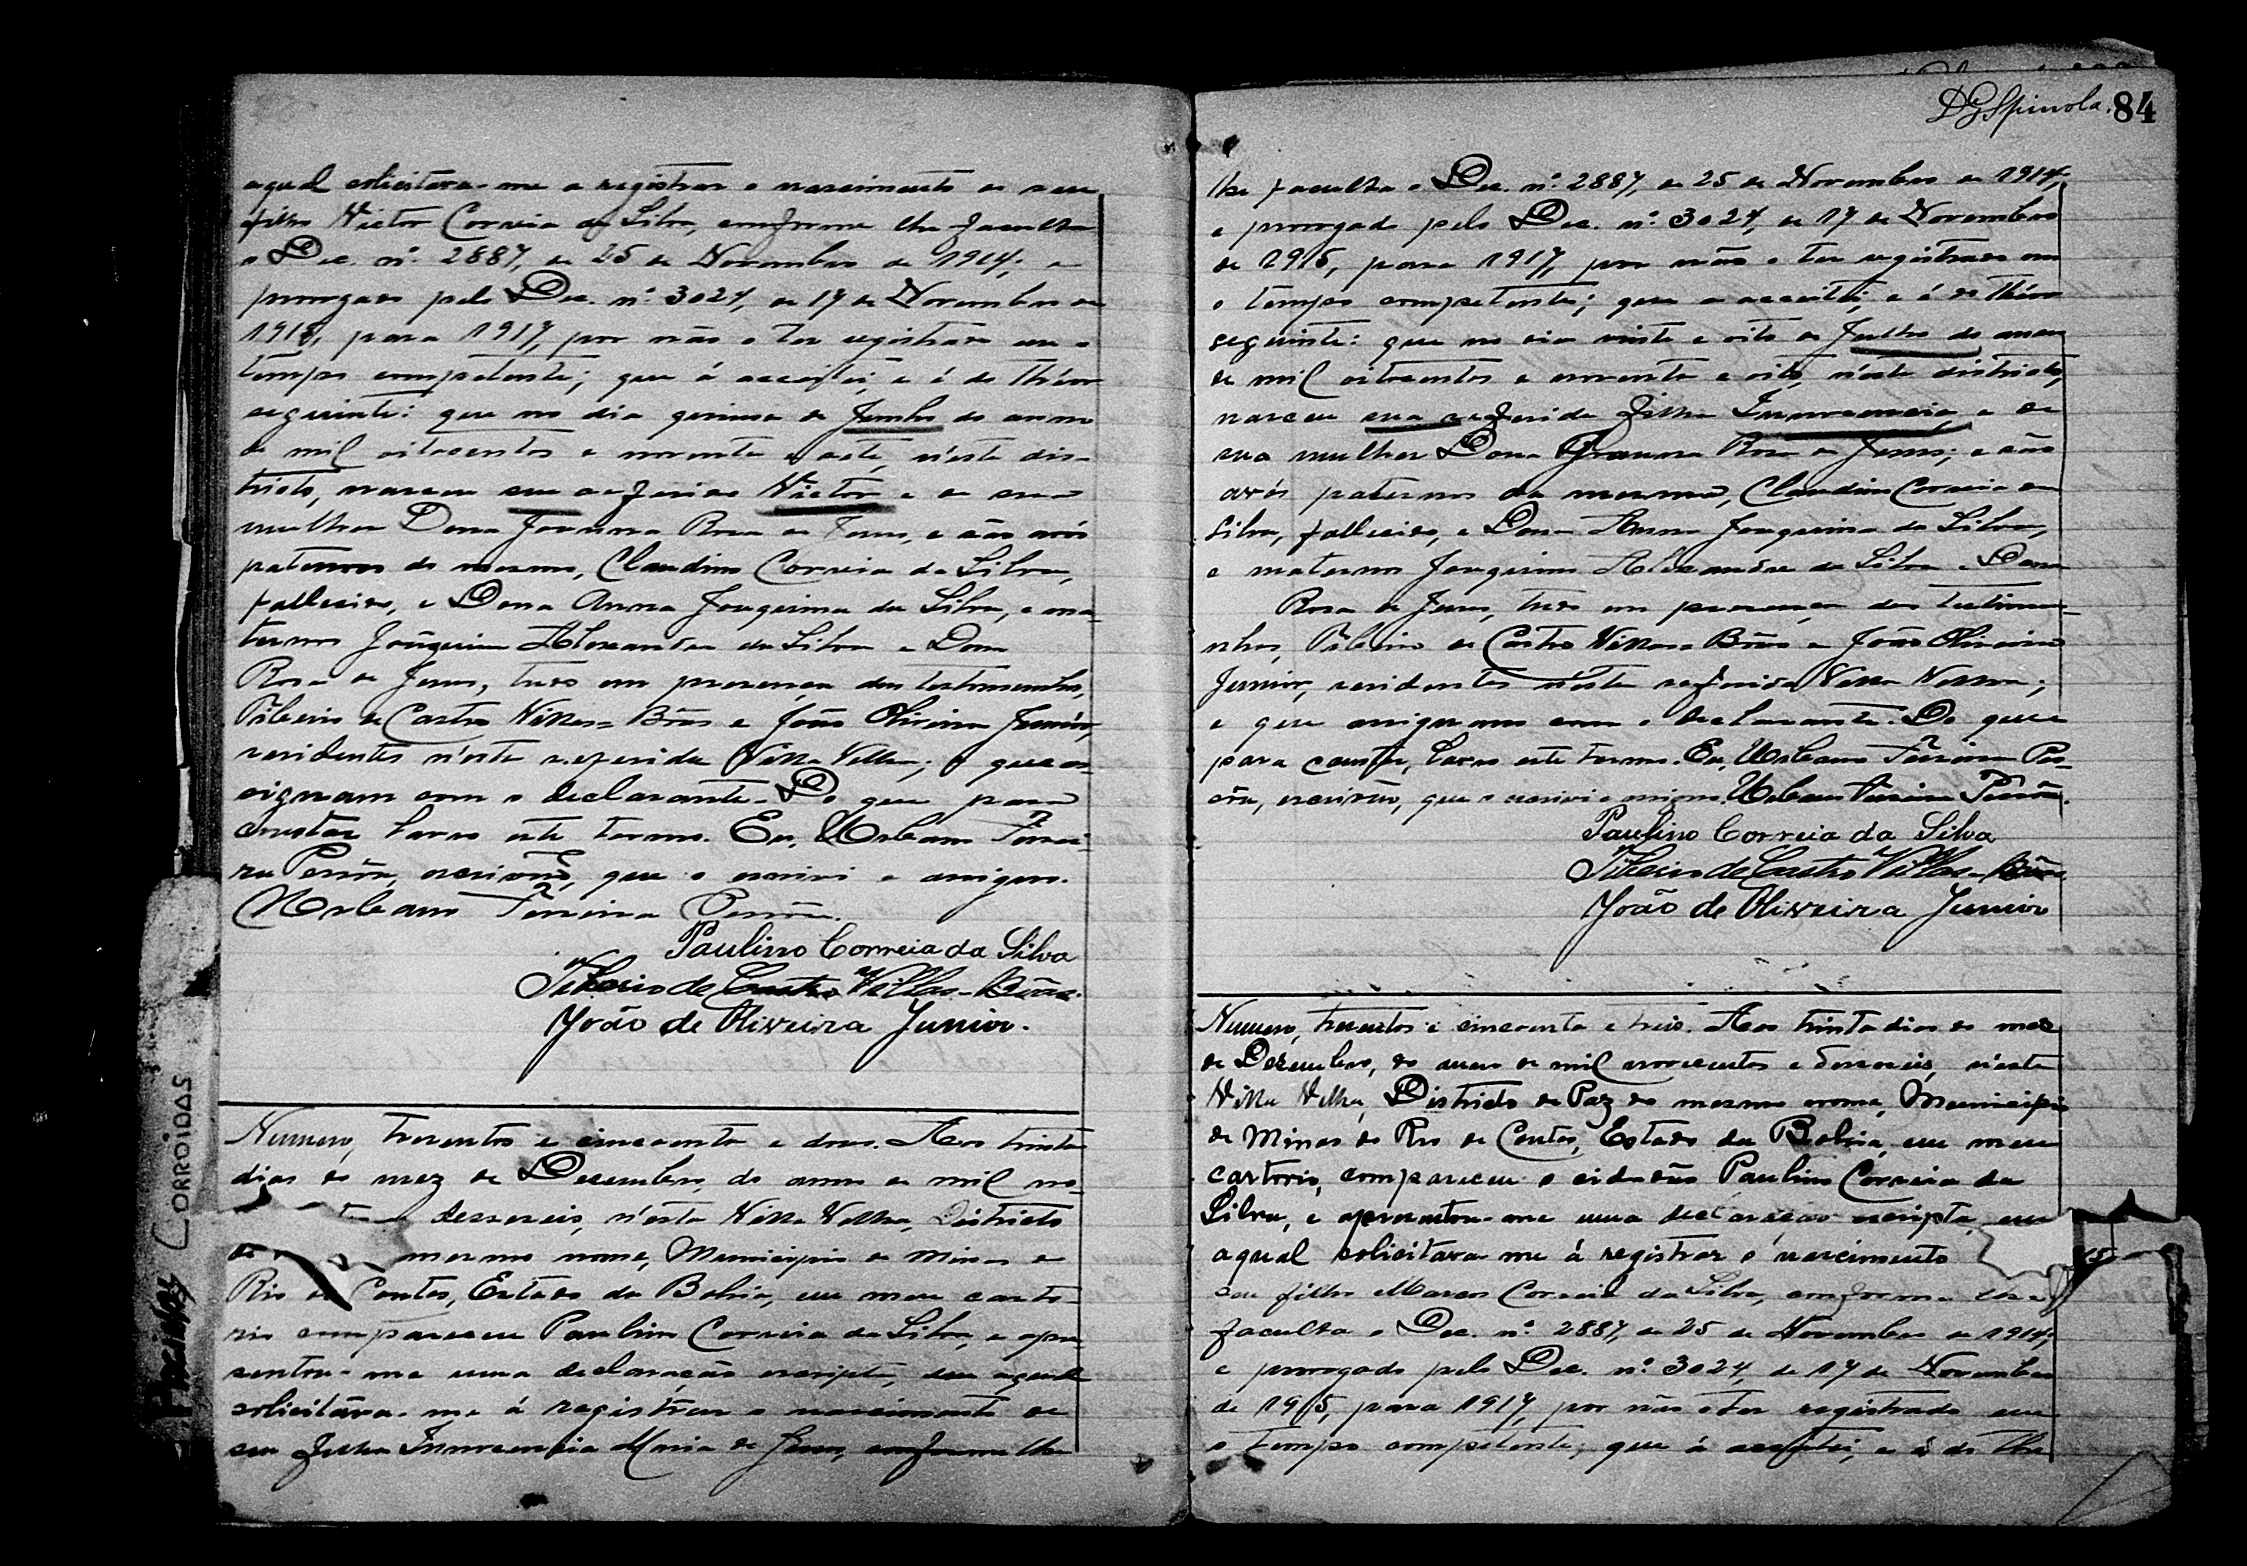 aqual solicitava-me a registrar o nascimento de seu
filho Victor Correia da Silva, conforme lhe faculta
o Dec. nº 2887, de 25 de Novembro de 1914; e
prorogado pelo Dec. nº 3024, de 17 de Novembro de
1915, para 1917, por não o ter registrado em o
tempo competente; que á acceitei, e é do théor
seguinte: que no dia quinse de Junho do anno
de mil oitocentos e noventa e sete, n'este dis-
tricto, nasceu seu referido Victor e de sua
mulher Dona Joanna Rosa de Jesus, e são avós
paternos do mesmo, Claudino Correia da Silva,
fallecido, e Dona Anna Joaquina da Silva, e ma-
ternos Joaquim Alexandre da Silva e Dona
Rosa de Jesus, tudo em presença das testemunhas,
Tiberio de Castro Villas-Bôas e João Oliveira Junior,
residentes n'esta referida Villa Velha; e que as-
signam com o declarante. Do que para
constar lavro este termo. Eu, Urbano Ferrei-
ra Pessôa, escrivão, que o escrivi e assigno.
Urbano Ferreira Pessôa.
Paulino Correia da Silva
Tiberio de Castro Villas-Bôas.
João de Oliveira Junior.
Numero, tresentos e cincoenta e dous. Aos trinta
dias do mez de Desembro, do anno de mil no-
desseseis, n'esta Villa Velha, Districto
de mesmo nome, Municipio de Minas do
Rio de Contas, Estado da Bahia, em meu carto-
rio compareceu Paulino Correia da Silva, e apre-
sentou-me uma declaração escripta, em aqual
solicitava-me á registrar o nascimento de
sua filha Innocencia Maria de Jesus, conforme lhe
DGSpinola. 84
lhe faculta o Dec. nº 2887, de 25 de Novembro de 1914,
e prorogado pelo Dec. nº 3024, de 17 de Novembro
de 1915, para 1917, por não o ter registrado em
o tempo competente; que a acceitei, e é do théor
seguinte: que no dia vinte e oito de Julho do anno
de mil oitocentos e noventa e oito, n'este districto,
nasceu sua referida filha Innocencia, e de
sua mulher Dona Joanna Rosa de Jesus; e são
avós paternos da mesma, Claudino Correia da
Silva, fallecido, e Dona Anna Joaquina da Silva,
e maternos Joaquim Alexandre da Silva e Dona
Rosa de Jesus, tudo em presença das testemu-
nhas, Tiberio de Castro Villas-Bôas e João Oliveira
Junior, residentes n'esta referida Villa Velha;
e que assignam com o declarante. Do que
para constar, lavro este termo. Eu, Urbano Ferreira Pes-
sôa, escrivão, que o escrivi e assigno. Urbano Ferreira Pessôa.
Paulino Correia da Silva
Tiberio de Castro Villas-Bôas
João de Oliveira Junior
Numero, tresentos e cincoenta e treis. Aos trinta dias do mez
de Dezembro, do anno de mil novecentos e desseseis, n'esta
Villa Velha, Districto de Paz do mesmo nome, Municipio
de Minas do Rio de Contas, Estado da Bahia, em meu
cartorio, compareceu o cidadão Paulino Correia da
Silva, e apresentou-me uma declaração escripta, em
aqual solicitava-me á registrar o nascimento
seu filho Marcos Correia da Silva, conforme lhe
faculta o Dec. nº 2887, de 25 de Novembro de 1914,
e prorogado pelo Dec. nº 3024, de 17 de Novembro
de 1915, para 1917, por não o ter registrado em
o tempo competente; que á acceitei, e é do thé
CORROIDAS